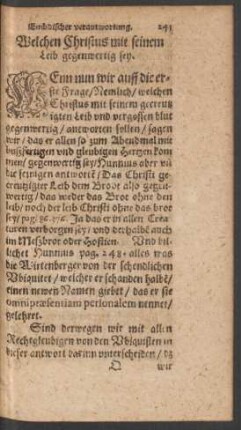 Emdischer verantwortung. 241
Welchen Christus mit seinem
Leib gegenwertig sey.
WEnn nun wir auff die er-
ste Frage/ Nemlich/ welchen
Christus mit seinem gecreutz
igten Leib und vergossen blut
gegenwertig/ antworten sollen/ sagen
wir/ das er allen so zum Abendmal mit
bußfertigen und gleubigen hertzen kom
men/ gegenwertig sey/ Hunnius aber uñ
die seinigen antwortẽ/ Das Christi ge-
creutzigter Leib dem Brodt also gegen-
wertig/ das weder das Brot ohne den
leib/ noch der leib Christi ohne das brot
sey/ pag. Ja das er in allen Crea
turen verborgen sey/ und derhalbẽ auch
im Meßbrot oder Hostien. Und bil-
lichet Hunnius pag. 248. alles was
die Wittenberger von der schendlichen
Ubiquitet/ welcher er schanden halbẽ/
einen newen Namen giebet/ das er sie
omnipraesentiam personalem nennet/
gelehret.
Sind derwegen wir mit allen
Rechtgleubigen von den Ubiquisten in
dieser antwort darinn unterscheiden/ dz
Q wir